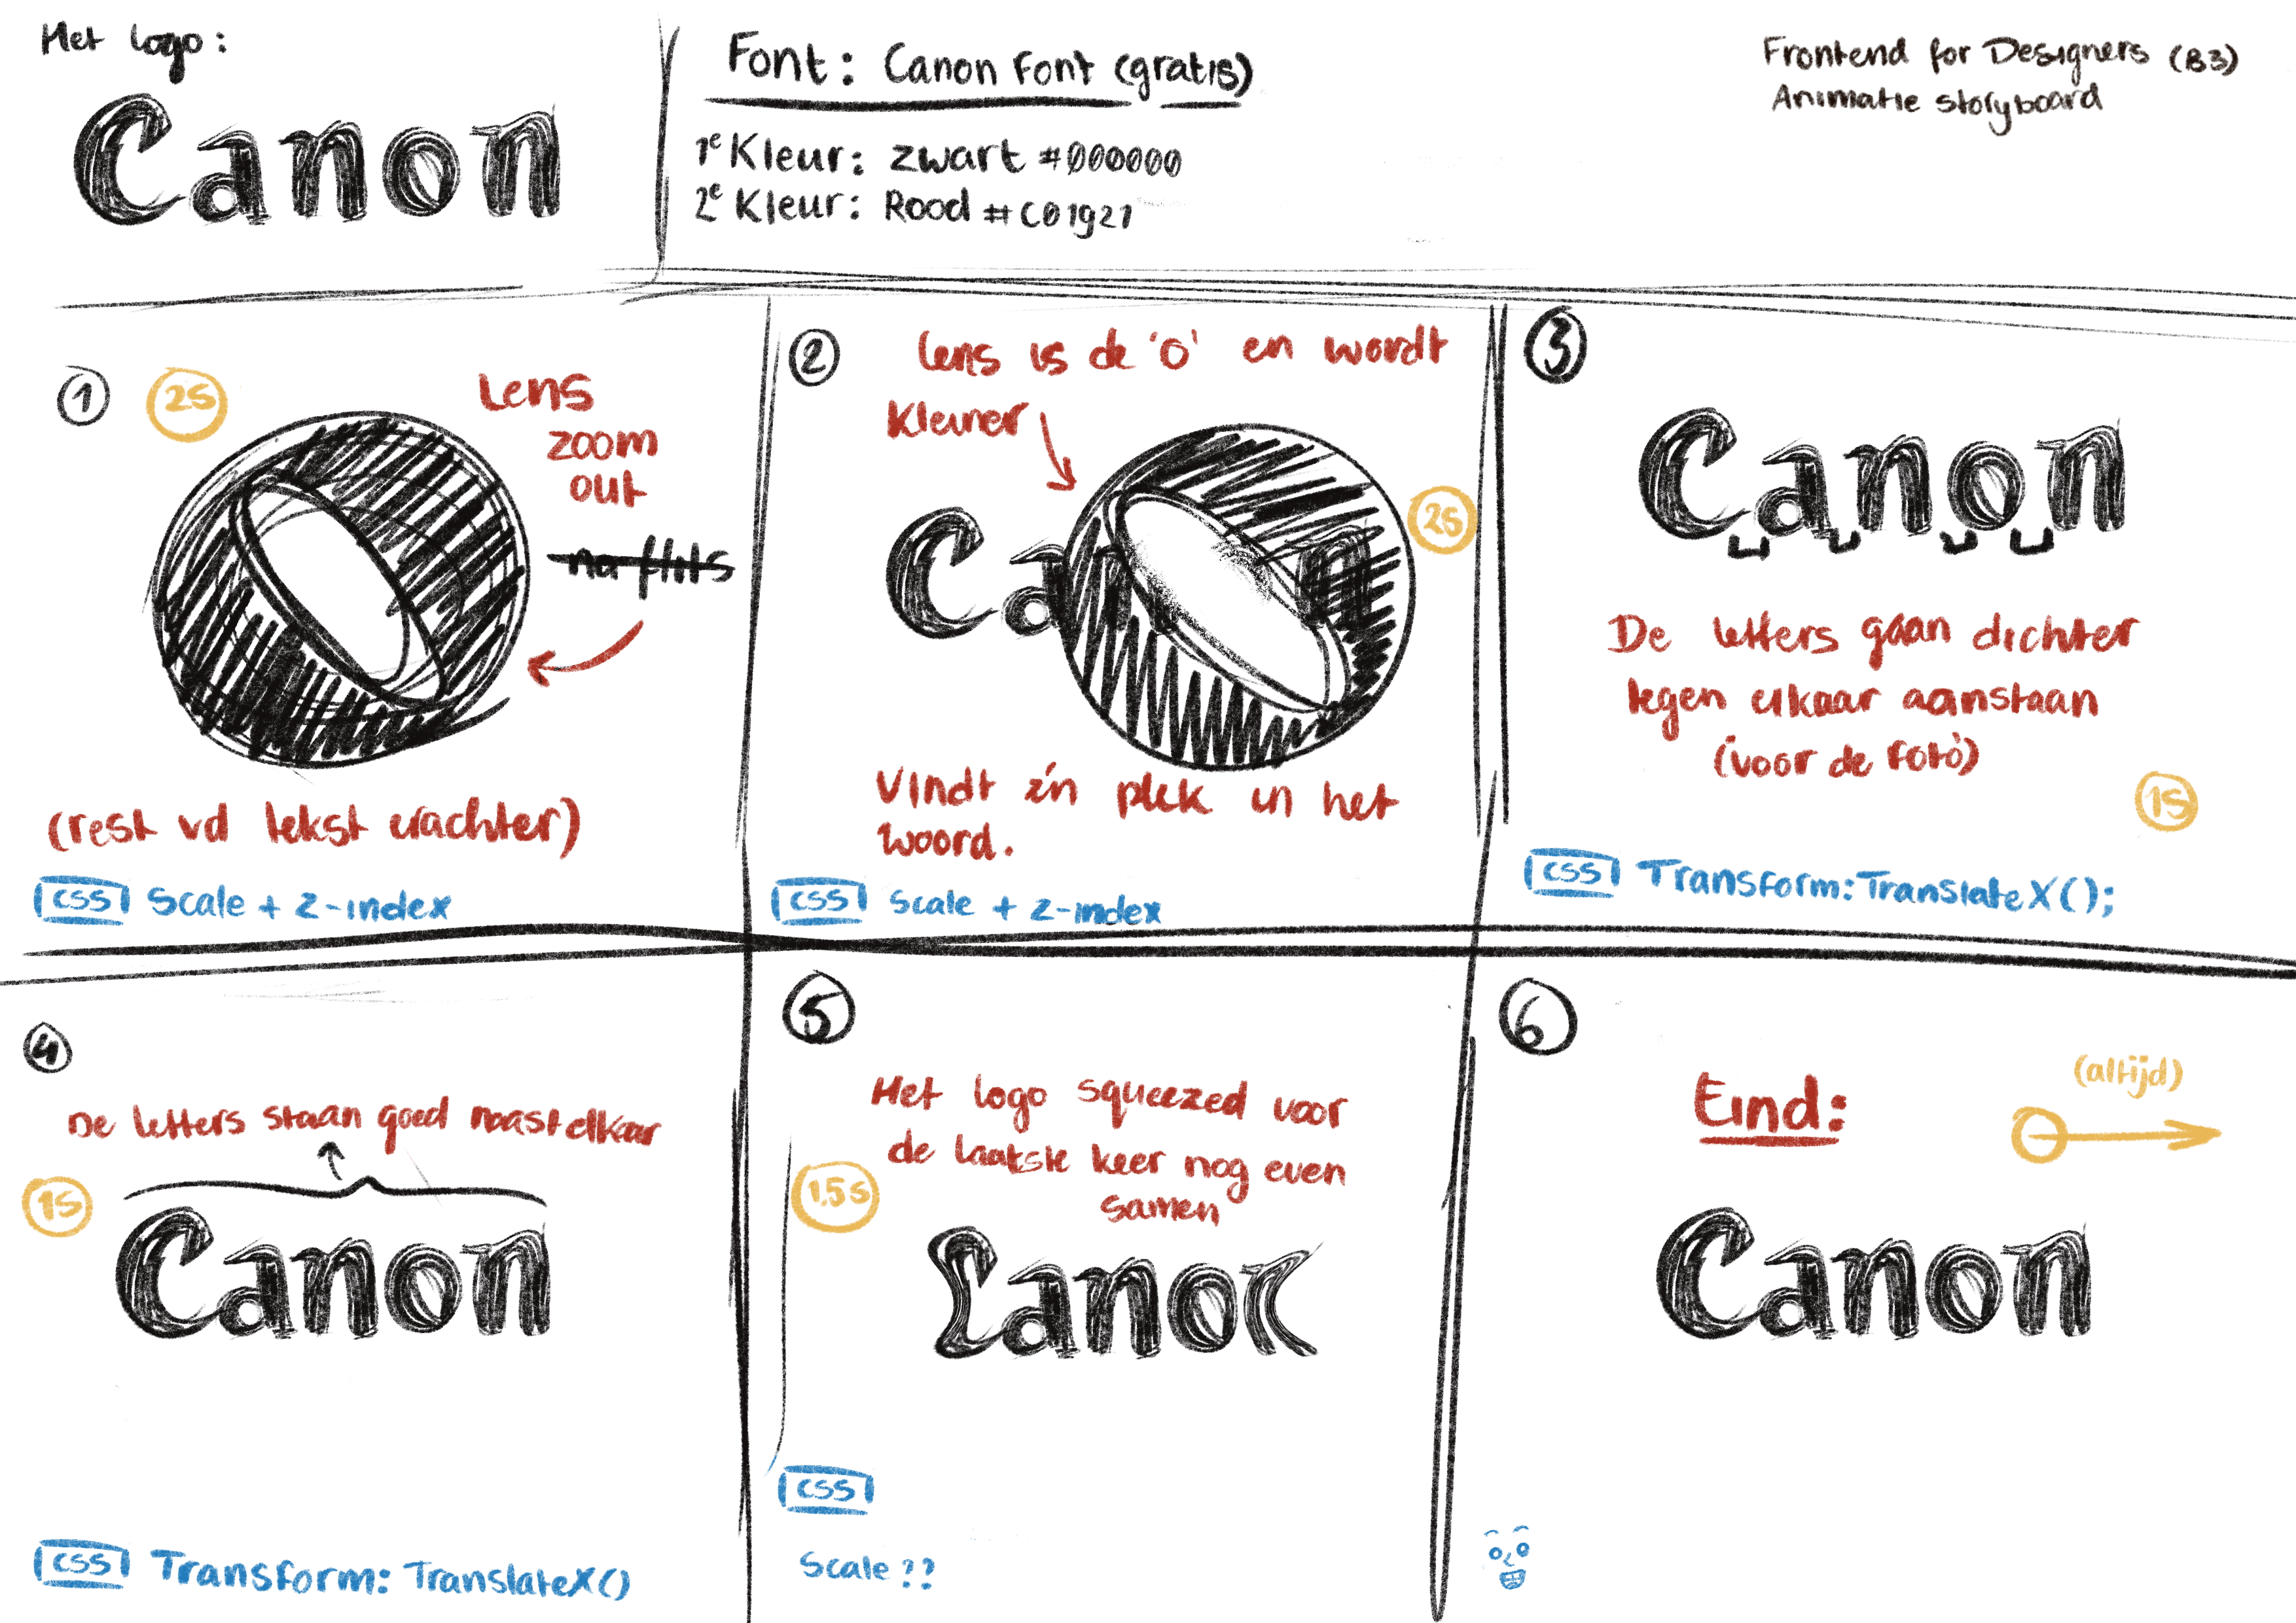 Het logo:
Canon
Font: Canon Font (gratis)
1e Kleur: zwart #000000
2e Kleur: Rood #C01921
Frontend for Designers (B3)
Animatie storyboard
1
2s
Lens
zoom
out
na flits
(rest vd tekst erachter)
CSS Scale + z-index
2
Lens is de 'O' en wordt
Kleiner
2s
Ca n
Vindt z'n plek in het
woord.
CSS Scale + z-index
3
Canon
De letters gaan dichter
tegen elkaar aanstaan
(voor de foto)
1s
CSS Transform: TranslateX();
4
De letters staan goed naast elkaar
1s
Canon
CSS Transform: TranslateX()
5
Het logo squeezed voor
de laatste keer nog even
samen
1,5s
Canon
CSS
Scale ??
6
Eind:
(altijd)
Canon